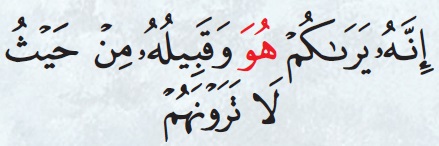 إِنَّهُۥ يَرَىٰكُمْ هُوَ وَقَبِيلُهُۥ مِنْ حَيْثُ
لَا تَرَوْنَهُمْ